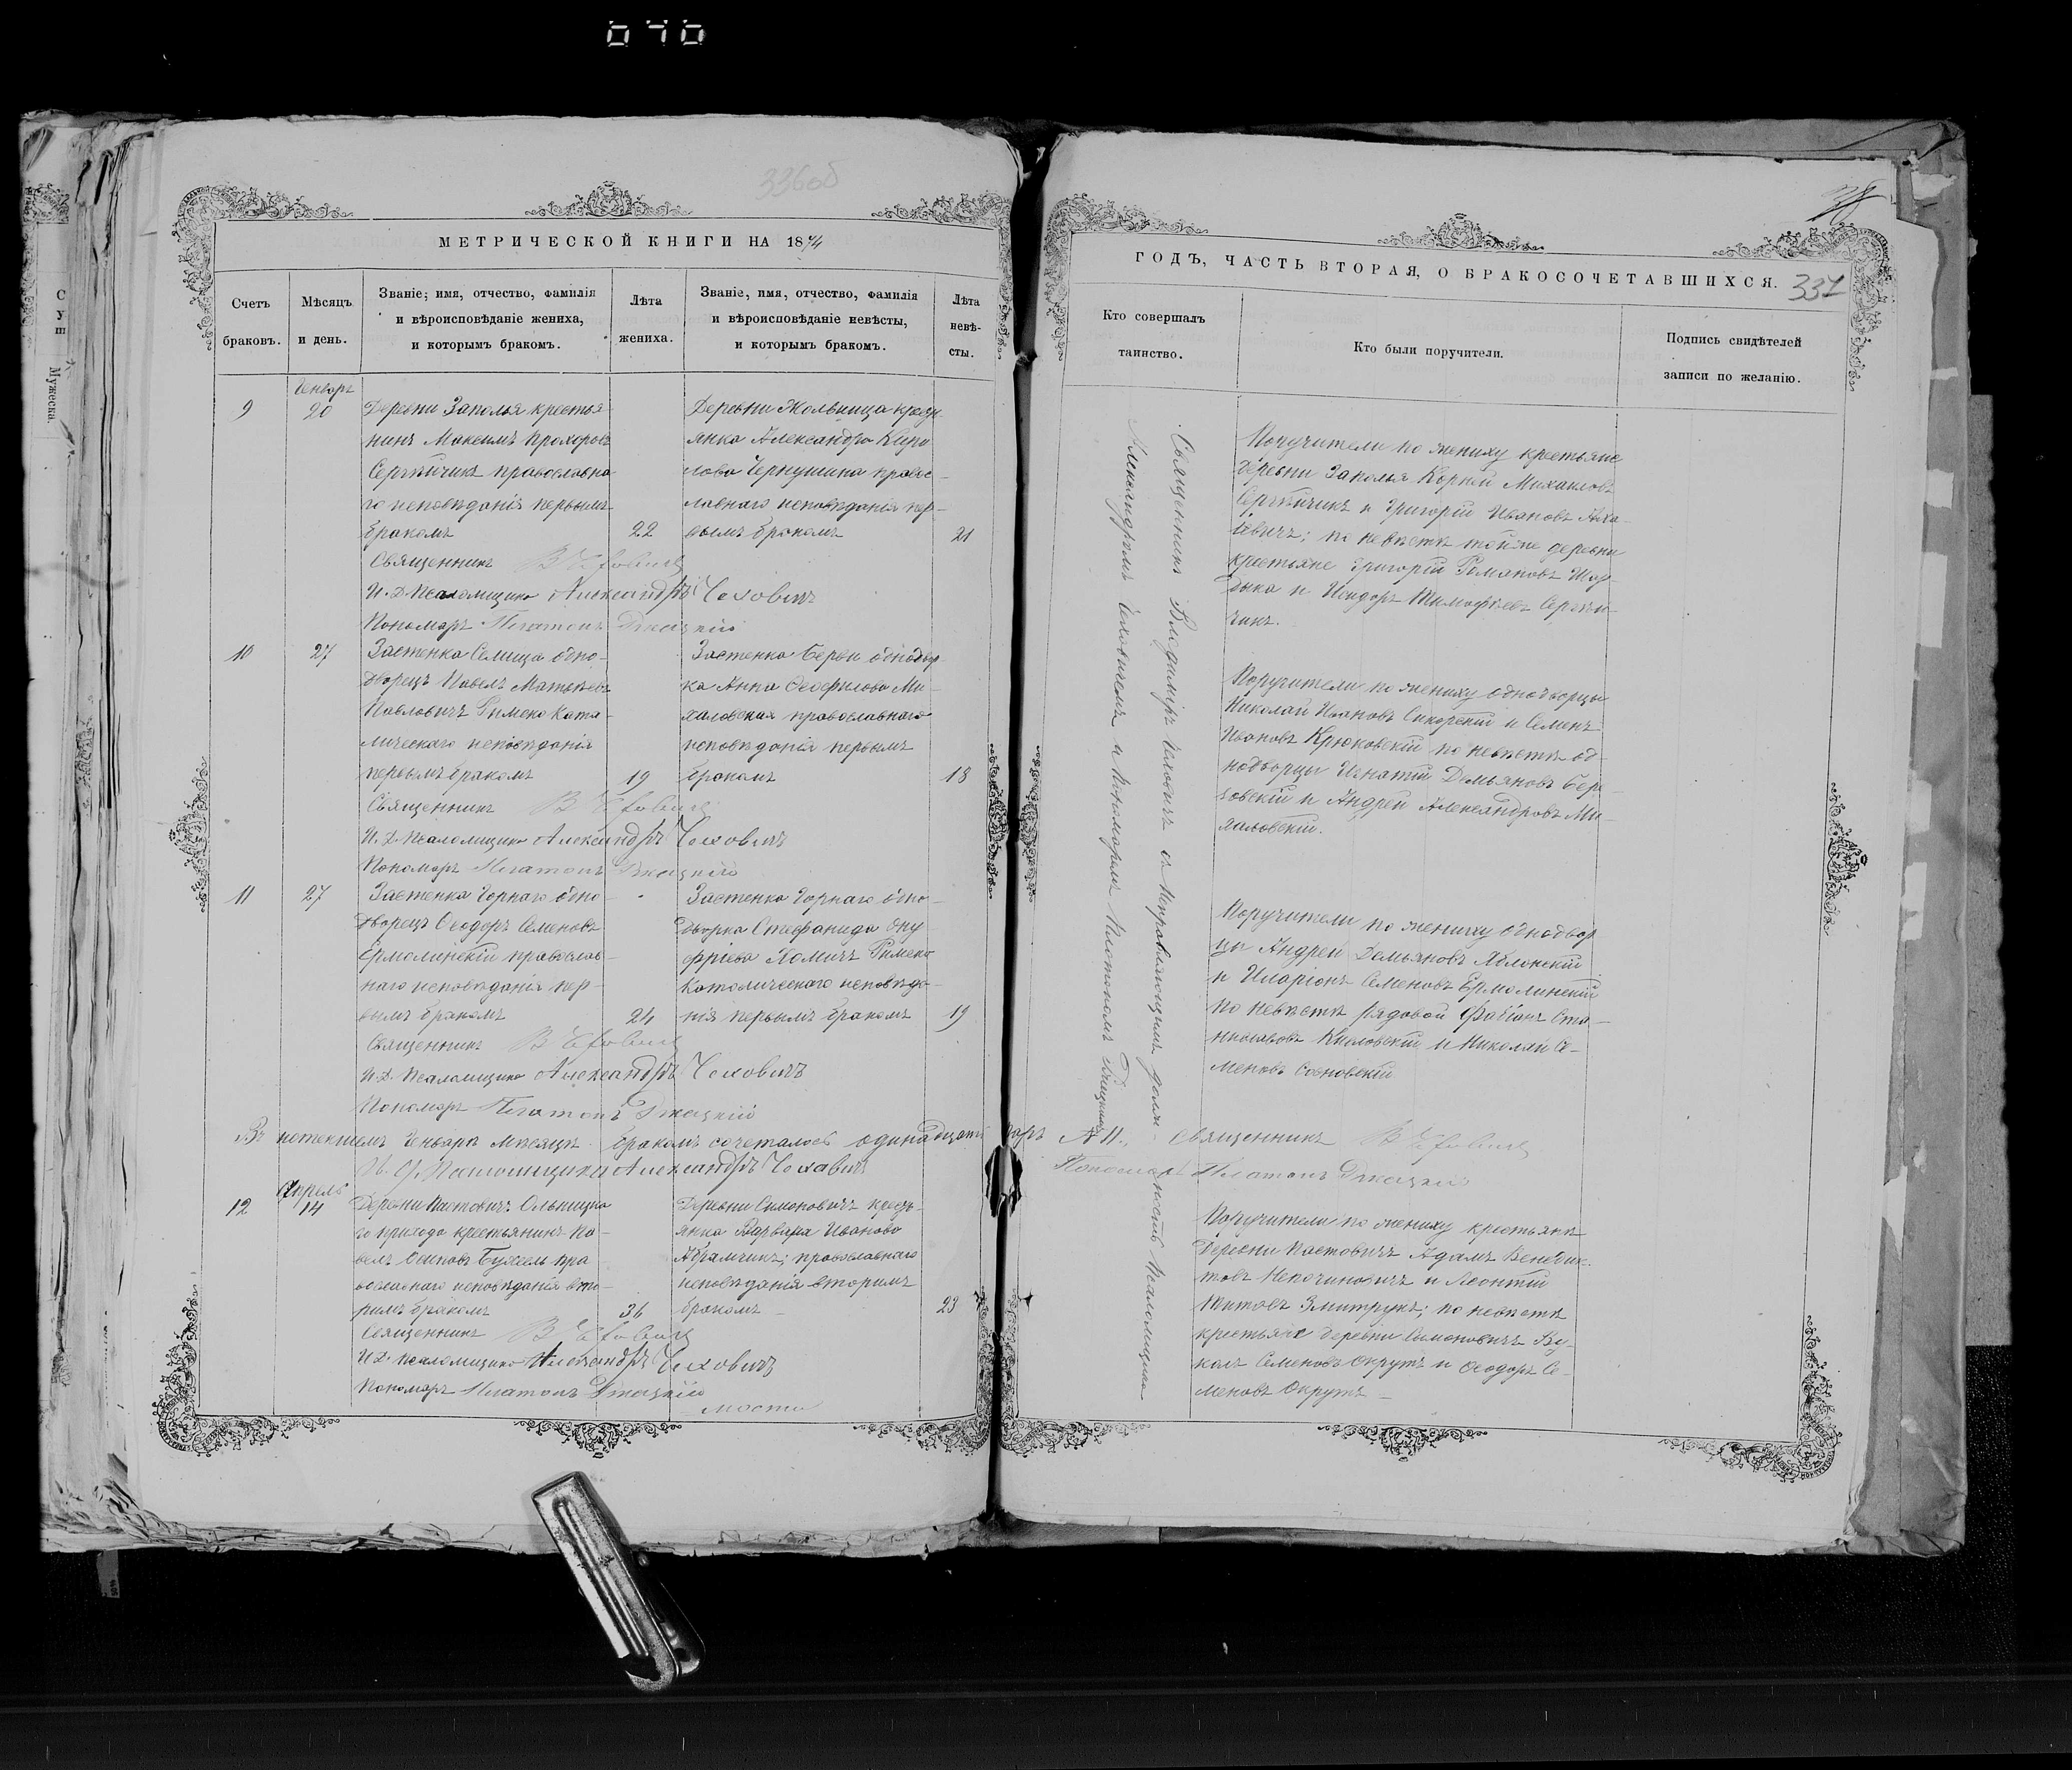 070
336об
МЕТРИЧЕСКОЙ КНИГИ НА 1874
Счетъ браковъ.
Мѣсяцъ и день.
Званіе; имя, отчество, фамилія
и вѣроисповѣданіе жениха,
и которымъ бракомъ.
Лѣта жениха.
Званіе, имя, отчество, фамилія
и вѣроисповѣданіе невѣсты,
и которымъ бракомъ.
Лѣта невѣ-
сты.
9
Генваръ
20
Деревни Заполья крестья-
нинъ Максимъ Прохоровъ
Сергѣйчикъ православна-
го исповѣданія первымъ
бракомъ
22
Деревни Жолвища кресть-
янка Александра Кири-
лова Чернушина правос-
лавнаго исповѣданія пер-
вымъ бракомъ
21
Священникъ
И. Д. Псаломщика Александръ Чеховичъ
Пономаръ Платонъ
10
27
Застенка Селища одно-
дворецъ Павелъ Матвѣевъ
Павловичъ Римско Като-
лическаго исповѣданія
первымъ бракомъ
19
Застенка Серви однодвор-
ка Анна Ѳеофилова Ми-
халовская православнаго
исповѣданія первымъ
бракомъ
18
Священникъ
И. Д. Псаломщика Александръ Чеховичъ
Пономаръ Платонъ
11
27
Застенка Горнаго одно-
дворецъ Ѳеодоръ Семеновъ
Ермолинскій православ-
наго исповѣданія пер-
вымъ бракомъ
24
Застенка Горнаго одно-
дворка Стефанида Ону-
фріева Хомичъ Римско
Католическаго исповѣда-
нія первымъ бракомъ
19
Священникъ
И. Д. Псаломщика Александръ Чеховичъ
Пономаръ Платонъ
Въ истекшемъ Генварѣ Мѣсяцѣ бракомъ сочеталось одинадцать паръ № 11. Священникъ
И. д. Псаломщика Александръ Чеховичъ
Пономаръ Платонъ
12
Апрель
14
Деревни Пастовичъ Ольницка-
го прихода крестьянинъ Па-
велъ Осиповъ пра-
вославнаго исповѣданія вто-
рымъ бракомъ
36
Деревни Симоновичъ кресть-
янка Варвара Иванова
Абрамчикъ; православнаго
исповѣданія вторымъ
бракомъ
23
Священникъ
И. Д. Псаломщика Александръ Чеховичъ
Пономаръ Платонъ
ГОДЪ, ЧАСТЬ ВТОРАЯ, О БРАКОСОЧЕТАВШИХСЯ.
337
Кто совершалъ
таинство.
Кто были поручители.
Подпись свидѣтелей
записи по желанію.
Священникъ Владиміръ Чеховичъ съ Исправляющимъ должность Псаломщика
Александромъ Чеховичемъ и Пономаремъ Платономъ
Поручители по жениху крестьяне
деревни Заполья Корней Михаиловъ
Сергѣйчикъ и Григорій Ивановъ
по невѣстѣ той же деревни
крестьяне Григорій Романовъ
и Исидоръ Тимофѣевъ Сергѣй-
чикъ.
Поручители по жениху однодворцы
Николай Ивановъ Сикорскій и Семенъ
Ивановъ Крюковскій по невѣстѣ од-
нодворцы Игнатій Демьяновъ Сер-
и Андрей Александровъ Ми-
халовскій.
Поручители по жениху однодвор-
цы Андрей Демьяновъ Яблонскій
и Иларіонъ Семеновъ Ермолинскій
по невѣстѣ рядовой Фабіанъ Ста-
ниславовъ Кисловскій и Николай Се-
меновъ Сосновскій
Поручители по жениху крестьяне
деревни Пастовичъ Адамъ Бенедик-
товъ и Леонтій
Титовъ Змитрукъ; по невѣстѣ
крестьяне деревни Симоновичъ Лу-
калъ Семеновъ Окрутъ и Ѳеодоръ Се-
меновъ Окрутъ
Мужеска.